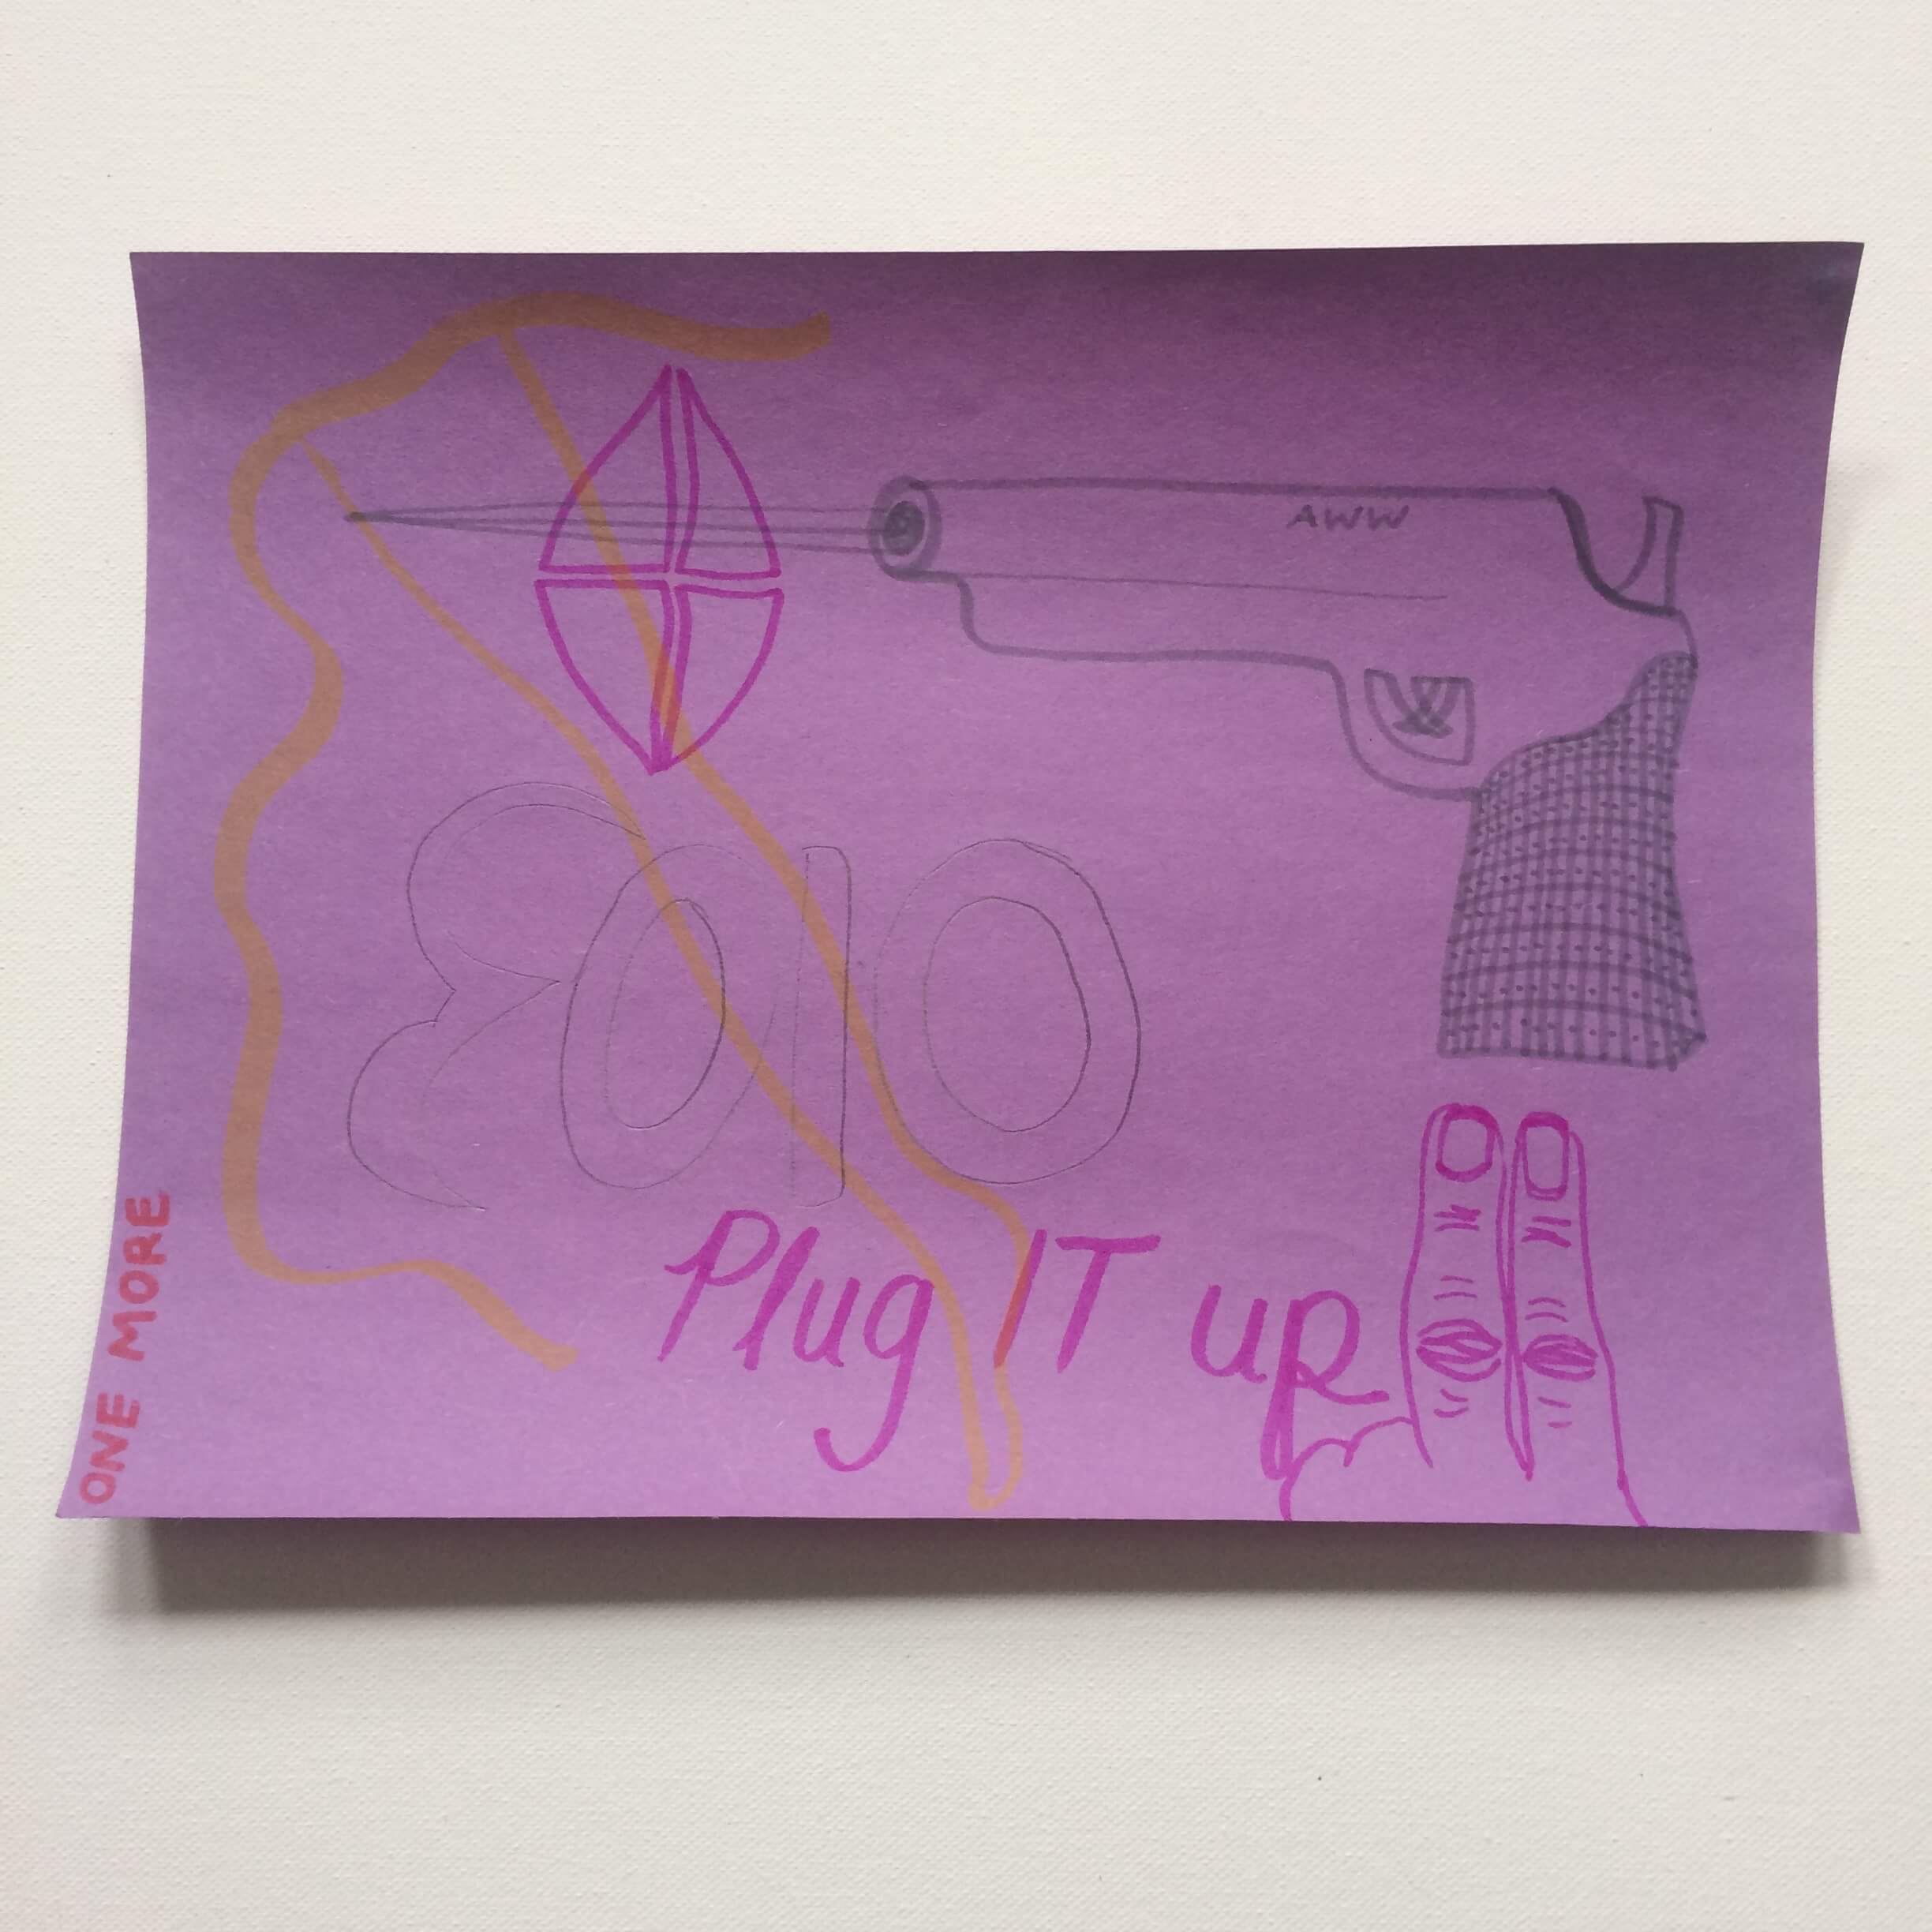 AWW
Plug IT up
ONE MORE